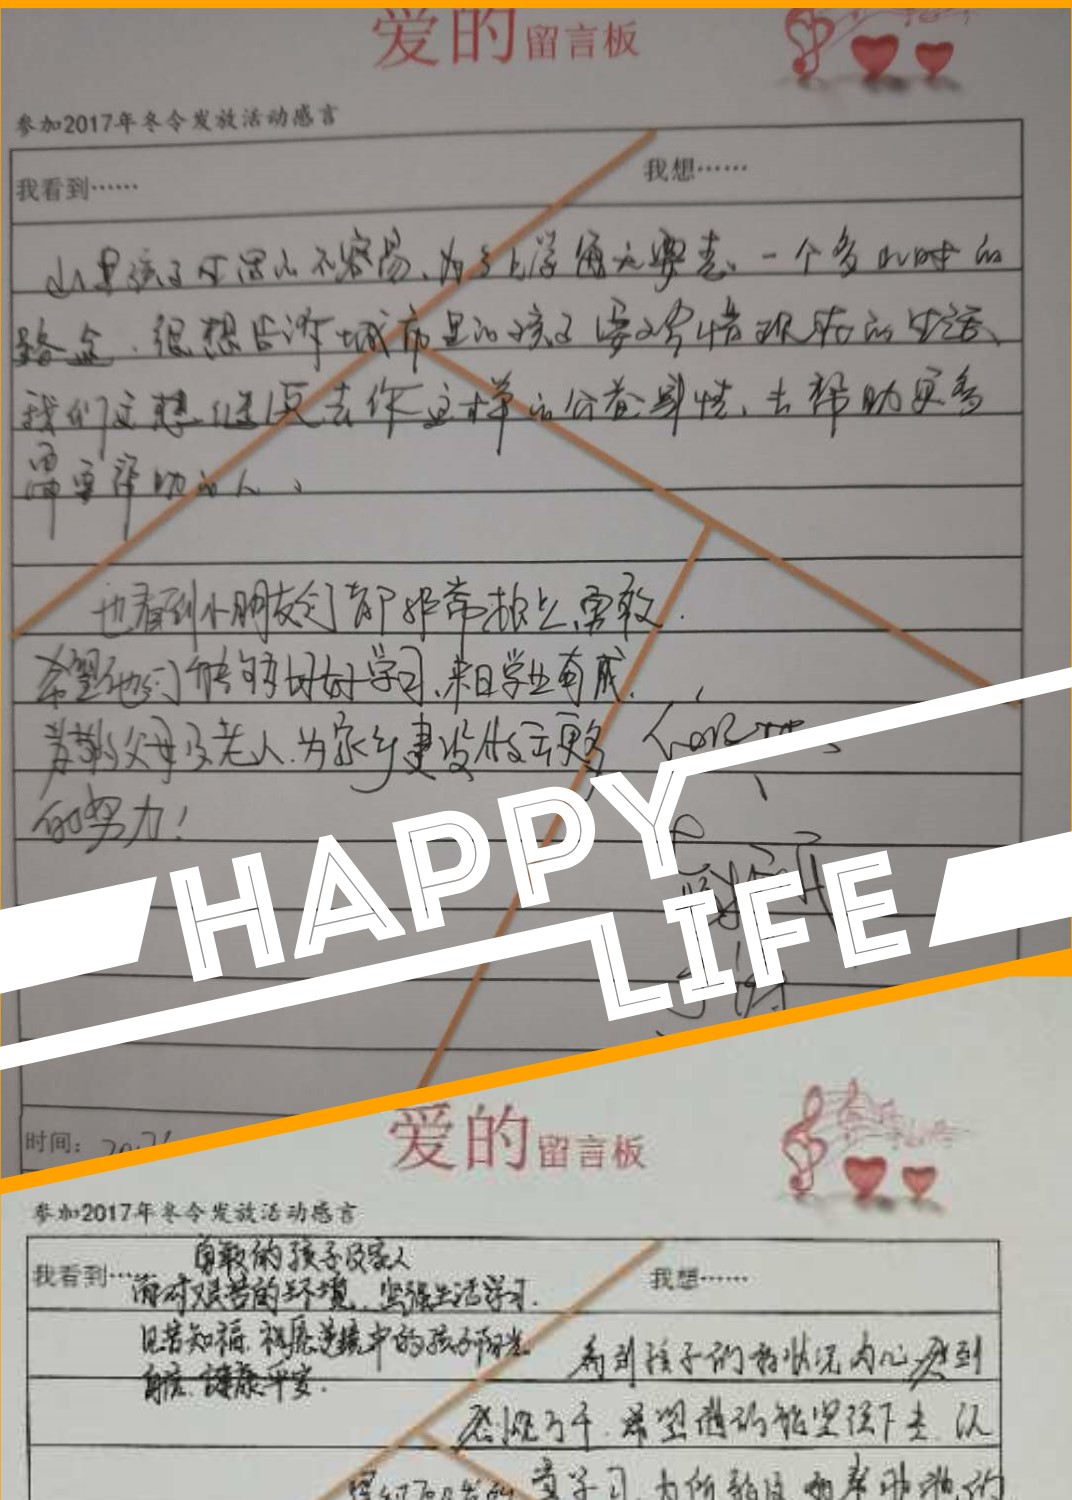 爱的留言板
参加2017年冬令发放活动感言
我看到……
我想……
山里孩子生活的不容易、为了上学每天要走、一个多小时的
路 很想告诉城市里的孩子要珍惜现在的生活、
我们应想继续去作这样的公益事情、去帮助更多
需要帮助的人、
也看到小朋友们都非常独立、勇敢.
希望他们能够好好学习,来日学业有成.
孝敬父母及老人.为家乡建设做出更多
的努力!
HAPPY
LIFE
时间:
爱的留言板
参加2017年冬令发放活动感言
我看到……
勇敢的孩子及家人
面对艰苦的环境、坚强生活学习.
见苦知福.祝愿逆境中的孩子阳光
自信、健康平安.
我想……
看到孩子的 状况内心感到
感慨万千.希望 的能坚强下去.认
真学习